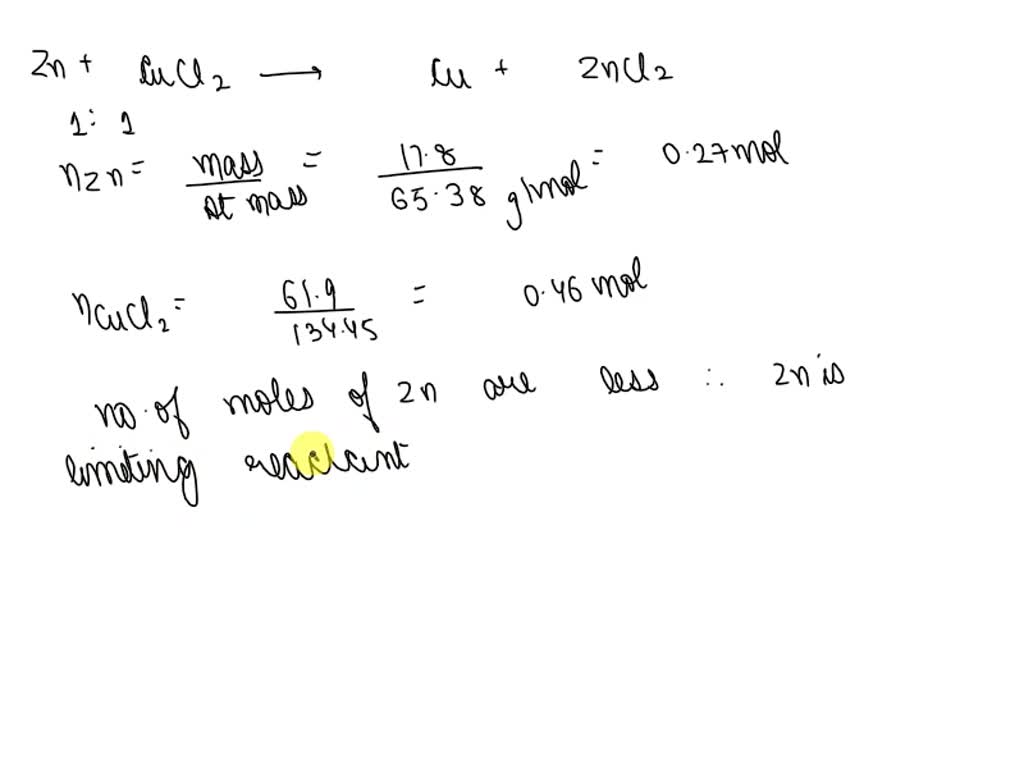 Zn + CuCl2 → Cu + ZnCl2
1 : 1
nZn = mass / At mass = 17.8 / 65.38 g/mol = 0.27 mol
nCuCl2 = 61.9 / 134.45 = 0.46 mol
no. of moles of Zn are less ∴ Zn is
limiting reactant